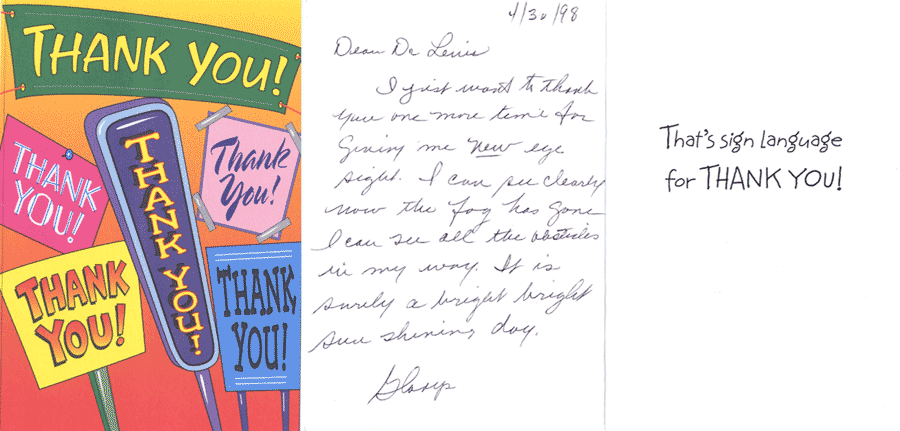 THANK YOU!
THANK
YOU!
THANK YOU!
Thank
You!
THANK
YOU!
THANK
YOU!
4/30/98
Dear Dr Lewis
I just want to thank
you one more time for
Giving me new eye
sight. I can see clearly
now the fog has gone
I can see all the obsticles
in my way. It is
surely a bright bright
sun shining day.
That's sign language
for THANK YOU!